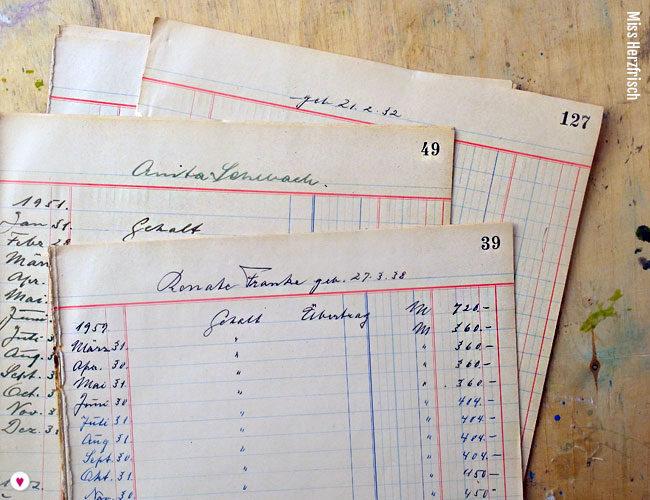 Miss Herzfrisch
127
geb 21.2.32
49
Anita
1951.
Jan 31.
Gehalt
Febr 28
März
Apr.
Mai
Juni
Juli 3
Aug. 3
Sept. 3
Oct. 3
Nov. 3
Dez. 3
39
Renate Franke geb. 27.3.38
1957 Gehalt Übertrag M 720.-
März 31. " M 360.-
Apr. 30. " " 360.-
Mai 31. " " 360.-
Juni 30 " " 404.-
Juli 31 " " 404.-
Aug 31 " " 404.-
Sept. 30. " " 404.-
Okt. 31. " " 450.-
Nov. 30 " " 450.-